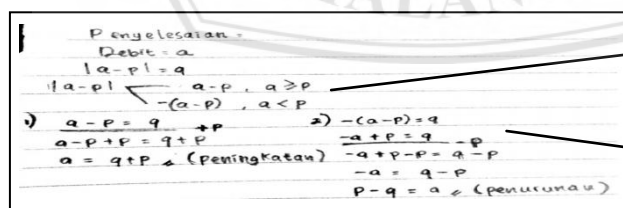 ALAN
Penyelesaian =
Debit = a
|a-p| = q
|a-p| a-p , a ≥ p
-(a-p) , a < p
1) a - p = q +p
a-p+p = q+p
a = q+p (peningkatan)
2) -(a-p) = q
-a + p = q -p
-a+p-p = q-p
-a = q-p
p-q = a (penurunan)